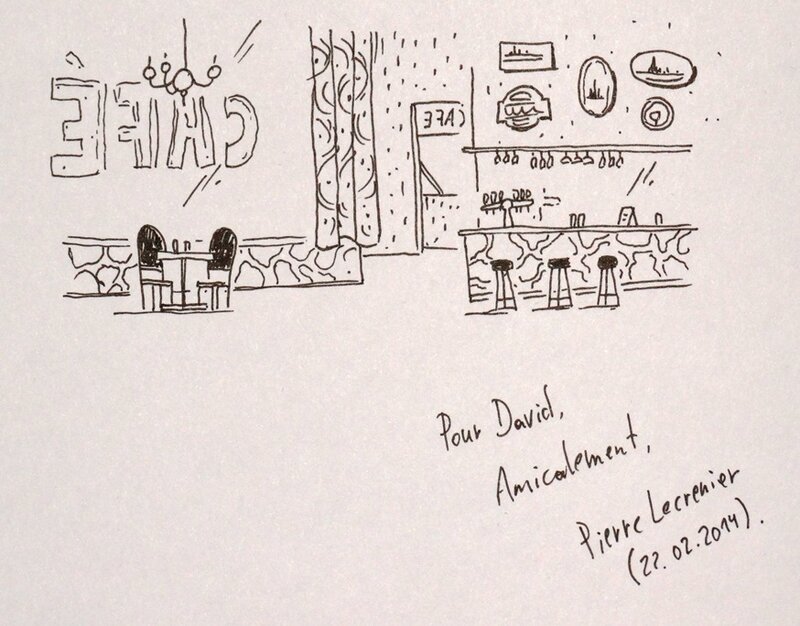 CAFE
CAFE
Pour David,
Amicalement,
Pierre Lecrenier
(22.02.2014).